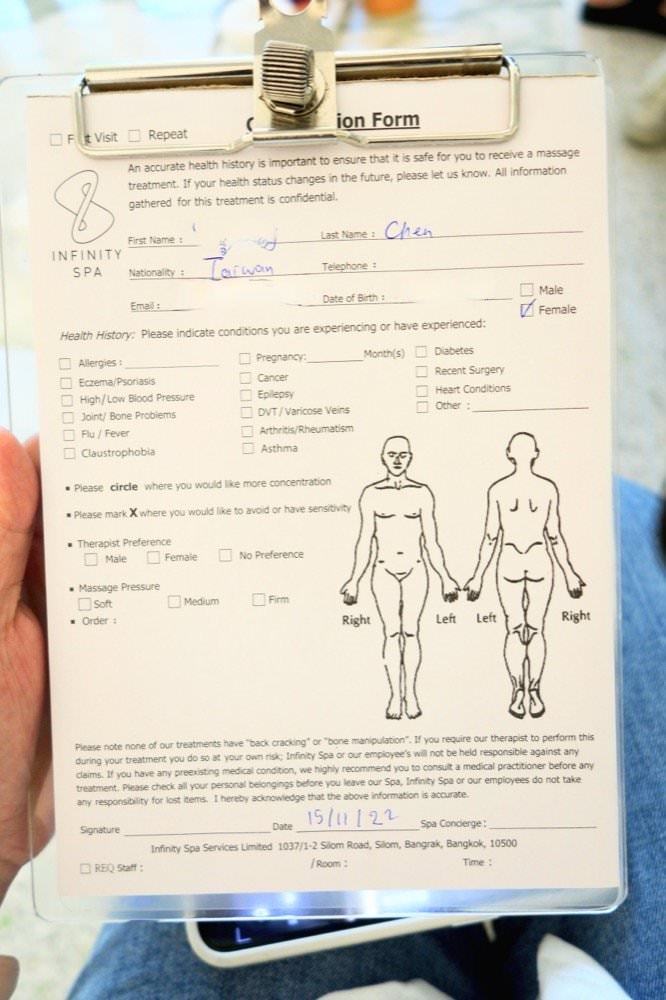 ion Form
Visit Repeat
An accurate health history is important to ensure that it is safe for you to receive a massage
treatment. If your health status changes in the future, please let us know. All information
gathered for this treatment is confidential.
INFINITY
SPA
First Name : Last Name : Chen
Nationality : Taiwan Telephone :
Email : Date of Birth : Male
Female
Health History: Please indicate conditions you are experiencing or have experienced:
Allergies : Pregnancy: Month(s) Diabetes
Eczema/Psoriasis Cancer Recent Surgery
High/Low Blood Pressure Epilepsy Heart Conditions
Joint/ Bone Problems DVT / Varicose Veins Other :
Flu / Fever Arthritis/Rheumatism
Claustrophobia Asthma
▪ Please circle where you would like more concentration
▪ Please mark X where you would like to avoid or have sensitivity
▪ Therapist Preference
Male Female No Preference
▪ Massage Pressure
Soft Medium Firm
▪ Order :
Right Left Left Right
Please note none of our treatments have "back cracking" or "bone manipulation". If you require our therapist to perform this
during your treatment you do so at your own risk; Infinity Spa or our employee's will not be held responsible against any
claims. If you have any preexisting medical condition, we highly recommend you to consult a medical practitioner before any
treatment. Please check all your personal belongings before you leave our Spa, Infinity Spa or our employees do not take
any responsibility for lost items. I hereby acknowledge that the above information is accurate.
Signature Date 15/11/22 Spa Concierge :
Infinity Spa Services Limited 1037/1-2 Silom Road, Silom, Bangrak, Bangkok, 10500
REQ Staff : / Room : Time :